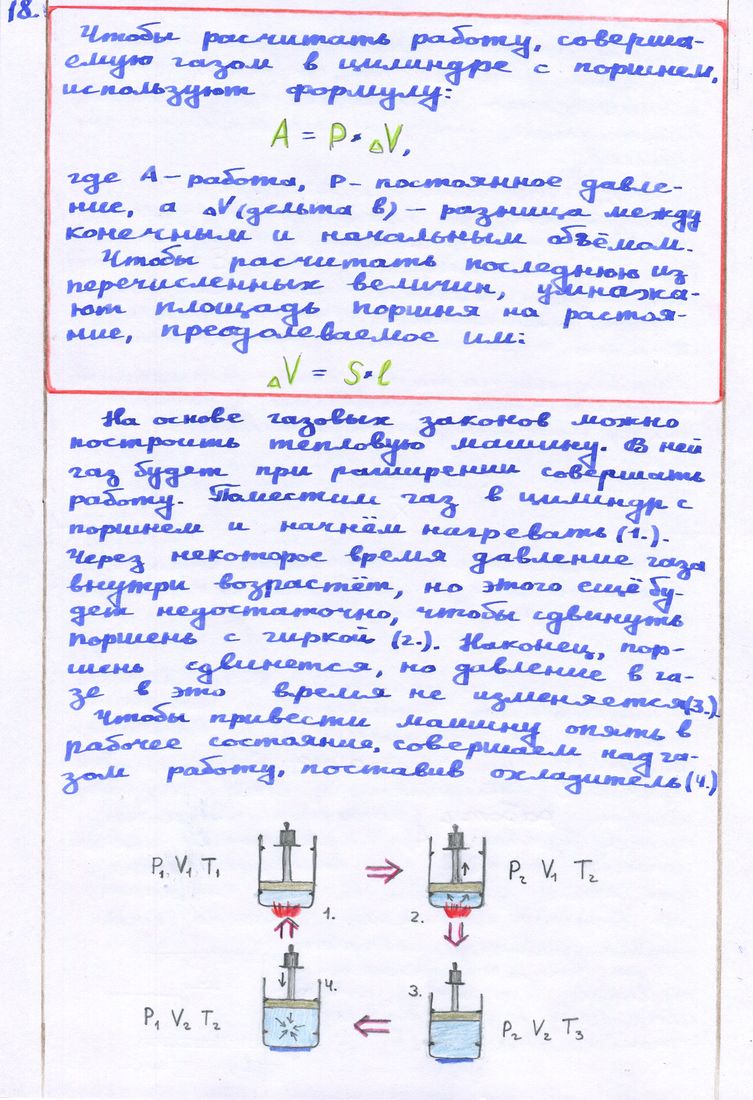 18.
Чтобы расчитать работу, соверша-
емую газом в цилиндре с поршнем,
используют формулу:
A = P · △V,
где A – работа, P – постоянное давле-
ние, а △V (дельта в) – разница между
конечным и начальным объёмом.
Чтобы расчитать последнюю из
перечисленных величин, умнажа-
ют площадь поршня на растоя-
ние, преодолеваемое им:
△V = S · l
На основе газовых законов можно
построить тепловую машину. В ней
газ будет при раширении совершать
работу. Поместим газ в цилиндр с
поршнем и начнём нагревать (1.).
Через некоторое время давление газа
внутри возрастёт, но этого ещё бу-
дет недостаточно, чтобы сдвинуть
поршень с гиркой (2.). Наконец, пор-
шень сдвинется, но давление в га-
зе в это время не изменяется (3.).
Чтобы привести машину опять в
рабочее состояние, совершаем над га-
зом работу, поставив охладитель (4.)
P₁, V₁, T₁
1.
2.
P₂ V₁ T₂
P₁ V₂ T₂
4.
3.
P₂ V₂ T₃